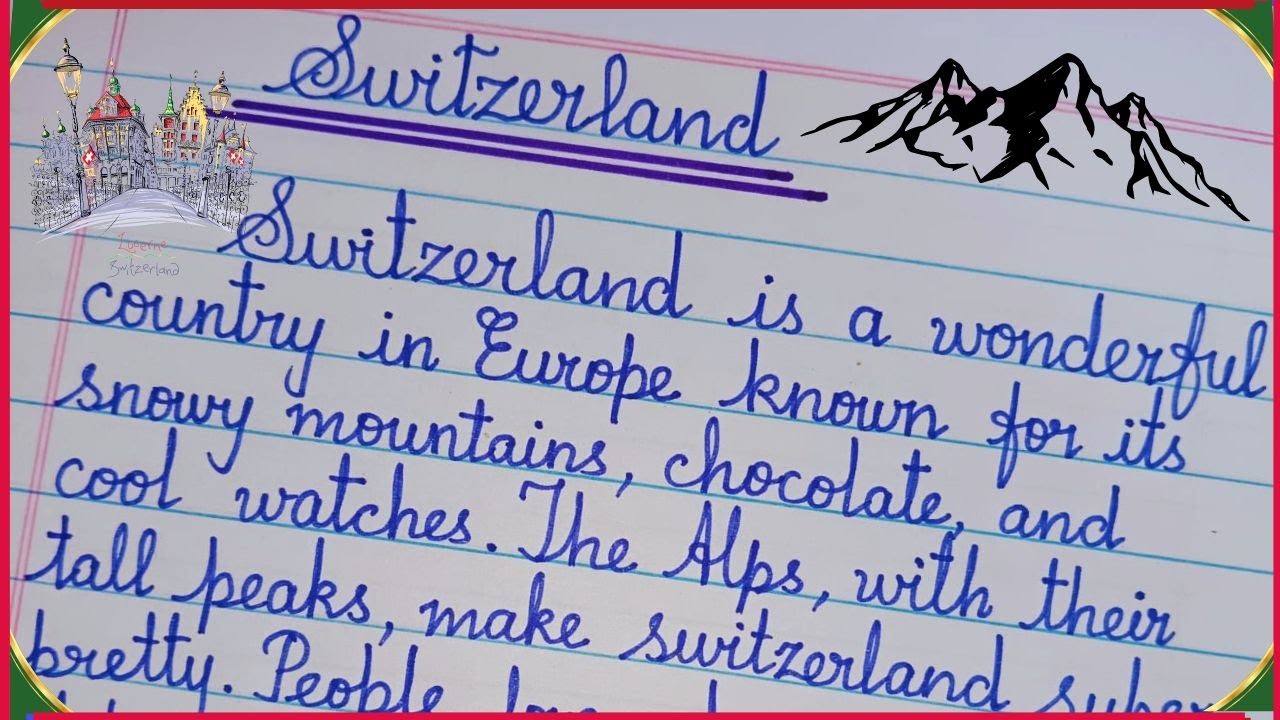 Switzerland
Lucerne
Switzerland
Switzerland is a wonderful
country in Europe known for its
snowy mountains, chocolate, and
cool watches. The Alps, with their
tall peaks, make switzerland super
pretty. People love